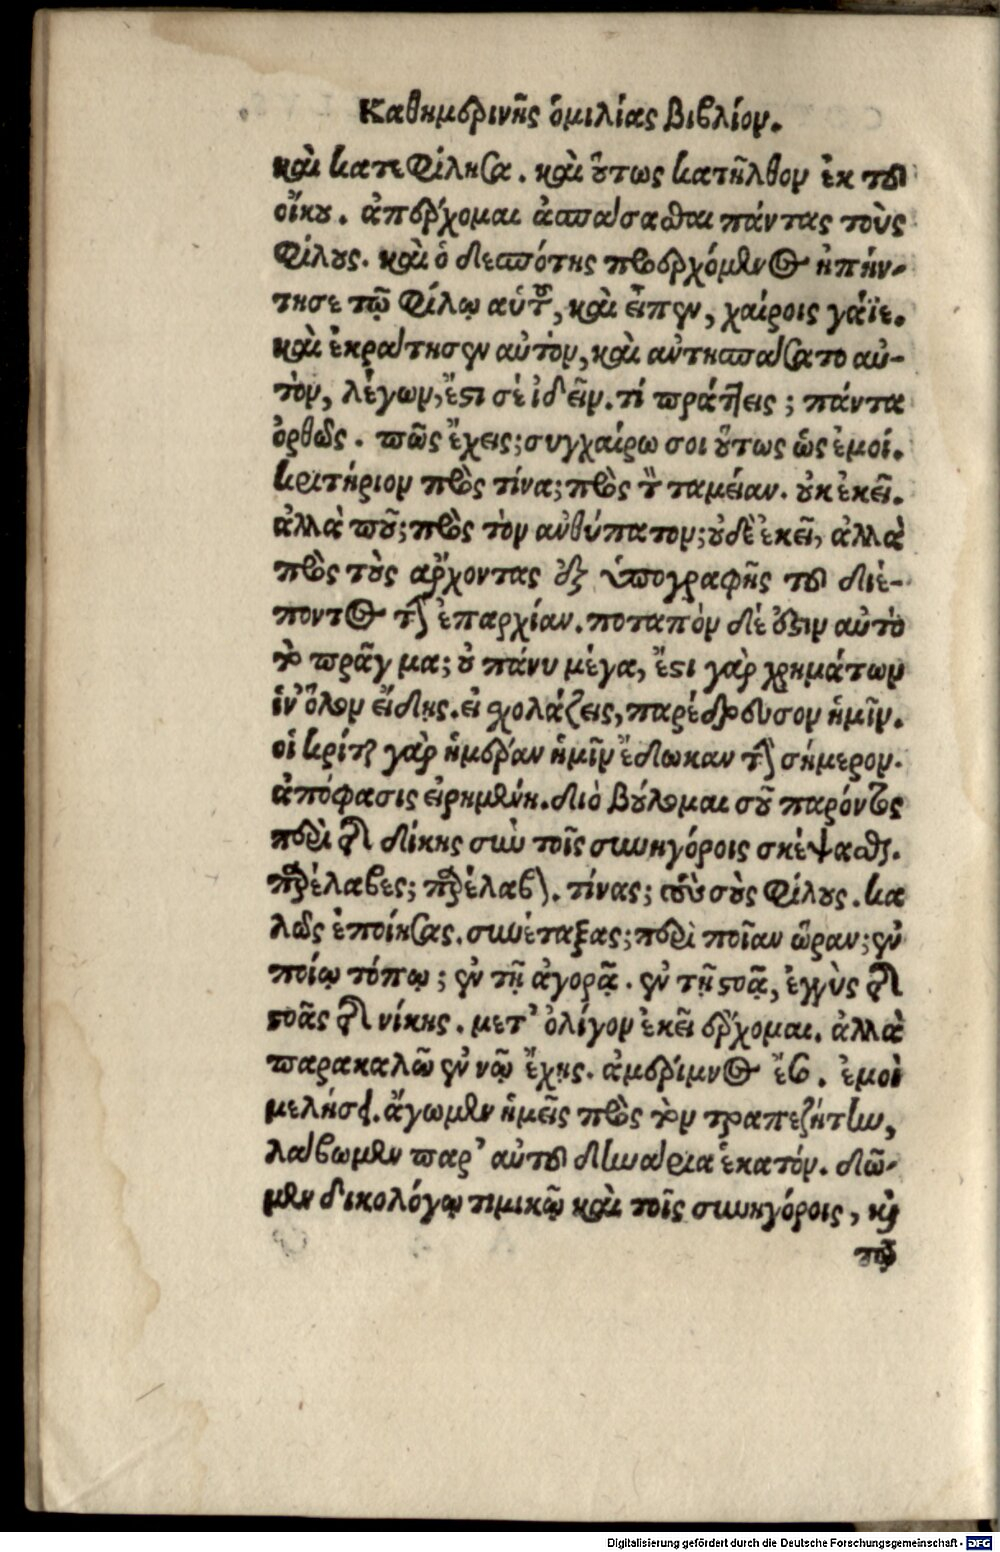 Καθημερινῆς ὁμιλίας βιβλίον.
καὶ κατεφίλησα. καὶ οὕτως κατῆλθον ἐκ τοῦ
οἴκου. ἀπέρχομαι ἀσπάσασθαι πάντας τοὺς
φίλους. καὶ ὁ δεσπότης προερχόμενος ἠπήν-
τησε τῷ φίλῳ αὑτοῦ, καὶ εἶπεν, χαίροις γάϊε.
καὶ ἐκράτησεν αὐτὸν, καὶ αὐτησπάσατο αὐ-
τὸν, λέγων, ἔστι σὲ ἰδεῖν. τί πράττεις; πάντα
ὀρθῶς. πῶς ἔχεις; συγχαίρω σοι οὕτως ὡς ἐμοί.
κριτήριον πρὸς τίνα; πρὸς τὸν ταμείαν. οὐκ ἐκεῖ.
ἀλλὰ ποῦ; πρὸς τὸν ἀνθύπατον; οὐδὲ ἐκεῖ, ἀλλὰ
πρὸς τοὺς ἄρχοντας ἐξ ὑπογραφῆς τοῦ διέ-
ποντος τὴν ἐπαρχίαν. ποταπὸν δέ ἐστιν αὐτὸ
τὸ πρᾶγμα; οὐ πάνυ μέγα, ἔστι γὰρ χρημάτων
ἵν' ὅλον εἴδῃς. εἰ σχολάζεις, παρέδρευσον ἡμῖν.
οἱ κριταὶ γὰρ ἡμέραν ἡμῖν ἔδωκαν τὴν σήμερον.
ἀπόφασις εἰρημένη. διὸ βούλομαι σοῦ παρόντος
περὶ τῆς δίκης σὺν τοῖς συνηγόροις σκέψασθαι.
παρέλαβες; παρέλαβον. τίνας; τοὺς σοὺς φίλους. κα
λῶς ἐποίησας. συνέταξας; περὶ ποῖαν ὥραν; ἐν
ποίῳ τόπῳ; ἐν τῇ ἀγορᾷ. ἐν τῇ στοᾷ, ἐγγὺς τῆς
στοᾶς τῆς νίκης. μετ' ὀλίγον ἐκεῖ ἔρχομαι. ἀλλὰ
παρακαλῶ ἐν νῷ ἔχῃς. ἀμέριμνος ἔσο. ἐμοὶ
μελήσει. ἄγωμεν ἡμεῖς πρὸς τὸν τραπεζήτην,
λάβωμεν παρ' αὐτοῦ δηνάρια ἑκατόν. δῶ-
μεν δικολόγῳ τιμικῷ καὶ τοῖς συνηγόροις, καὶ
τῷ
Digitalisierung gefördert durch die Deutsche Forschungsgemeinschaft - DFG